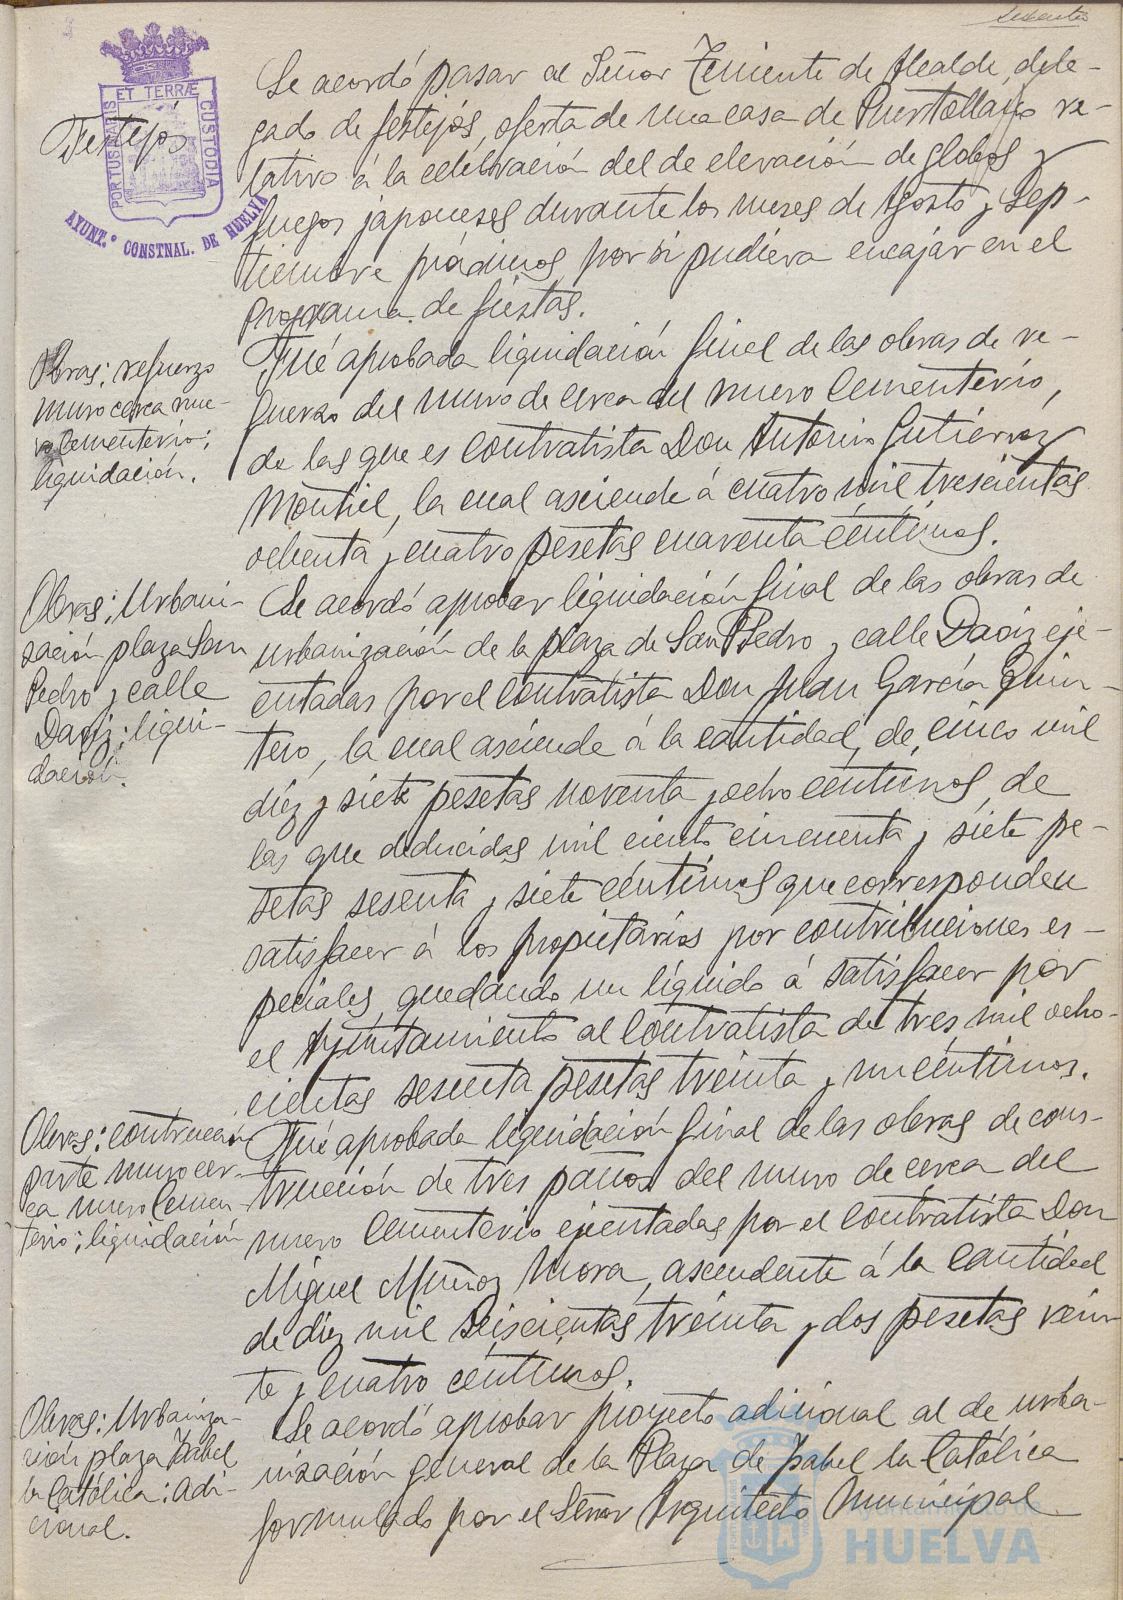 Sesenta
ET TERRÆ
PORTUS MARIS
CUSTODIA
AYUNT.º CONSTNAL. DE HUELVA
Festejos
Se acordó pasar al Señor Teniente de Alcalde, dele-
gado de festejos, oferta de una casa de Puertollano re-
lativo á la celebración del de elevación de globos y
fuegos japoneses durante los meses de Agosto y Sep-
tiembre próximos, por si pudiera encajar en el
programa de fiestas.
Obras: refuerzo
muro cerca nue-
vo Cementerio;
liquidación.
Fué aprobada liquidación final de las obras de re-
fuerzo del muro de cerca del nuevo Cementerio,
de las que es contratista Don Antonio Gutiérrez
Montiel, la cual asciende á cuatro mil trescientas
ochenta y cuatro pesetas cuarenta céntimos.
Obras: Urbani-
zación plaza San
Pedro y calle
Daoiz: liqui-
dación.
Se acordó aprobar liquidación final de las obras de
urbanización de la plaza de San Pedro y calle Daoiz eje-
cutadas por el contratista Don Juan García Quin-
tero, la cual asciende á la cantidad de cinco mil
diez y siete pesetas noventa y ocho céntimos, de
las que deducidas mil ciento cincuenta y siete pe-
setas sesenta y siete céntimos que corresponden
satisfacer á los propietarios por contribuciones es-
peciales, quedando un líquido á satisfacer por
el Ayuntamiento al contratista de tres mil ocho-
cientas sesenta pesetas treinta y un céntimos.
Obras: contrucción
parte muro cer-
ca nuevo Cemen-
terio; liquidación
Fué aprobada liquidación final de las obras de cons-
trucción de tres paños del muro de cerca del
nuevo Cementerio ejecutadas por el contratista Don
Miguel Muñoz Mora, ascendente á la cantidad
de diez mil seiscientas treinta y dos pesetas vein-
te y cuatro céntimos.
Obras: Urbaniza-
ción plaza Isabel
la Católica: adi-
cional.
Se acordó aprobar proyecto adicional al de urba-
nización general de la Plaza de Isabel la Católica
formulado por el Señor Arquitecto Municipal.
Ayuntamiento de
HUELVA